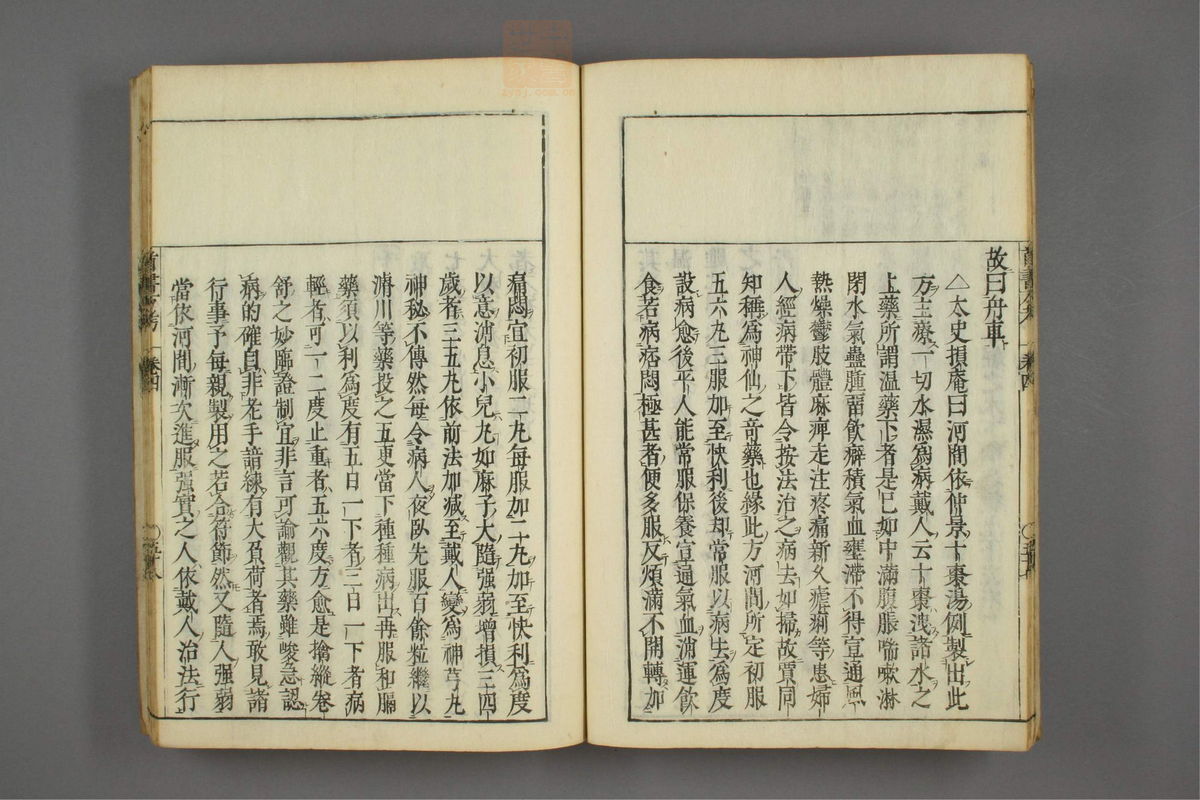 故曰舟車
△太史損庵曰河間依仲景十棗湯例製出此
方主療一切水濕爲病戴人云十棗洩諸水之
上藥所謂温藥下者是巳如中滿腹脹喘嗽淋
閉水氣蠱腫畱飲癖積氣血壅滯不得宣通風
熱燥鬱肢體麻痺走注疼痛新久瘧痢等患婦
人經病帶下皆令按法治之病去如掃故賈同
知稱爲神仙之竒藥也縁此方河間所定初服
五六丸三服加至快利後却常服以病去爲度
設病愈後平人能常服保養宣通氣血消運飲
食若病痞悶極甚者便多服反煩滿不開轉加
痛悶宜初服二丸每服加二丸加至快利爲度
以意消息小兒丸如麻子大隨强弱增損三四
歲者三五丸依前法加减至戴人變爲神芎丸
神秘不傳然每令病人夜臥先服百餘粒繼以
濬川等藥投之五更當下種種病出再服和膈
藥須以利爲度有五日一下者三日一下者病
輕者可一二度止重者五六度方愈是擒縱卷
舒之妙臨證制宜非言可諭觀其藥雖峻急認
病的確自非老手諳練有大負荷者焉敢見諸
行事予每親製用之若合符節然又隨人强弱
當依河間漸次進服强實之人依戴人治法行
卷四
卷四